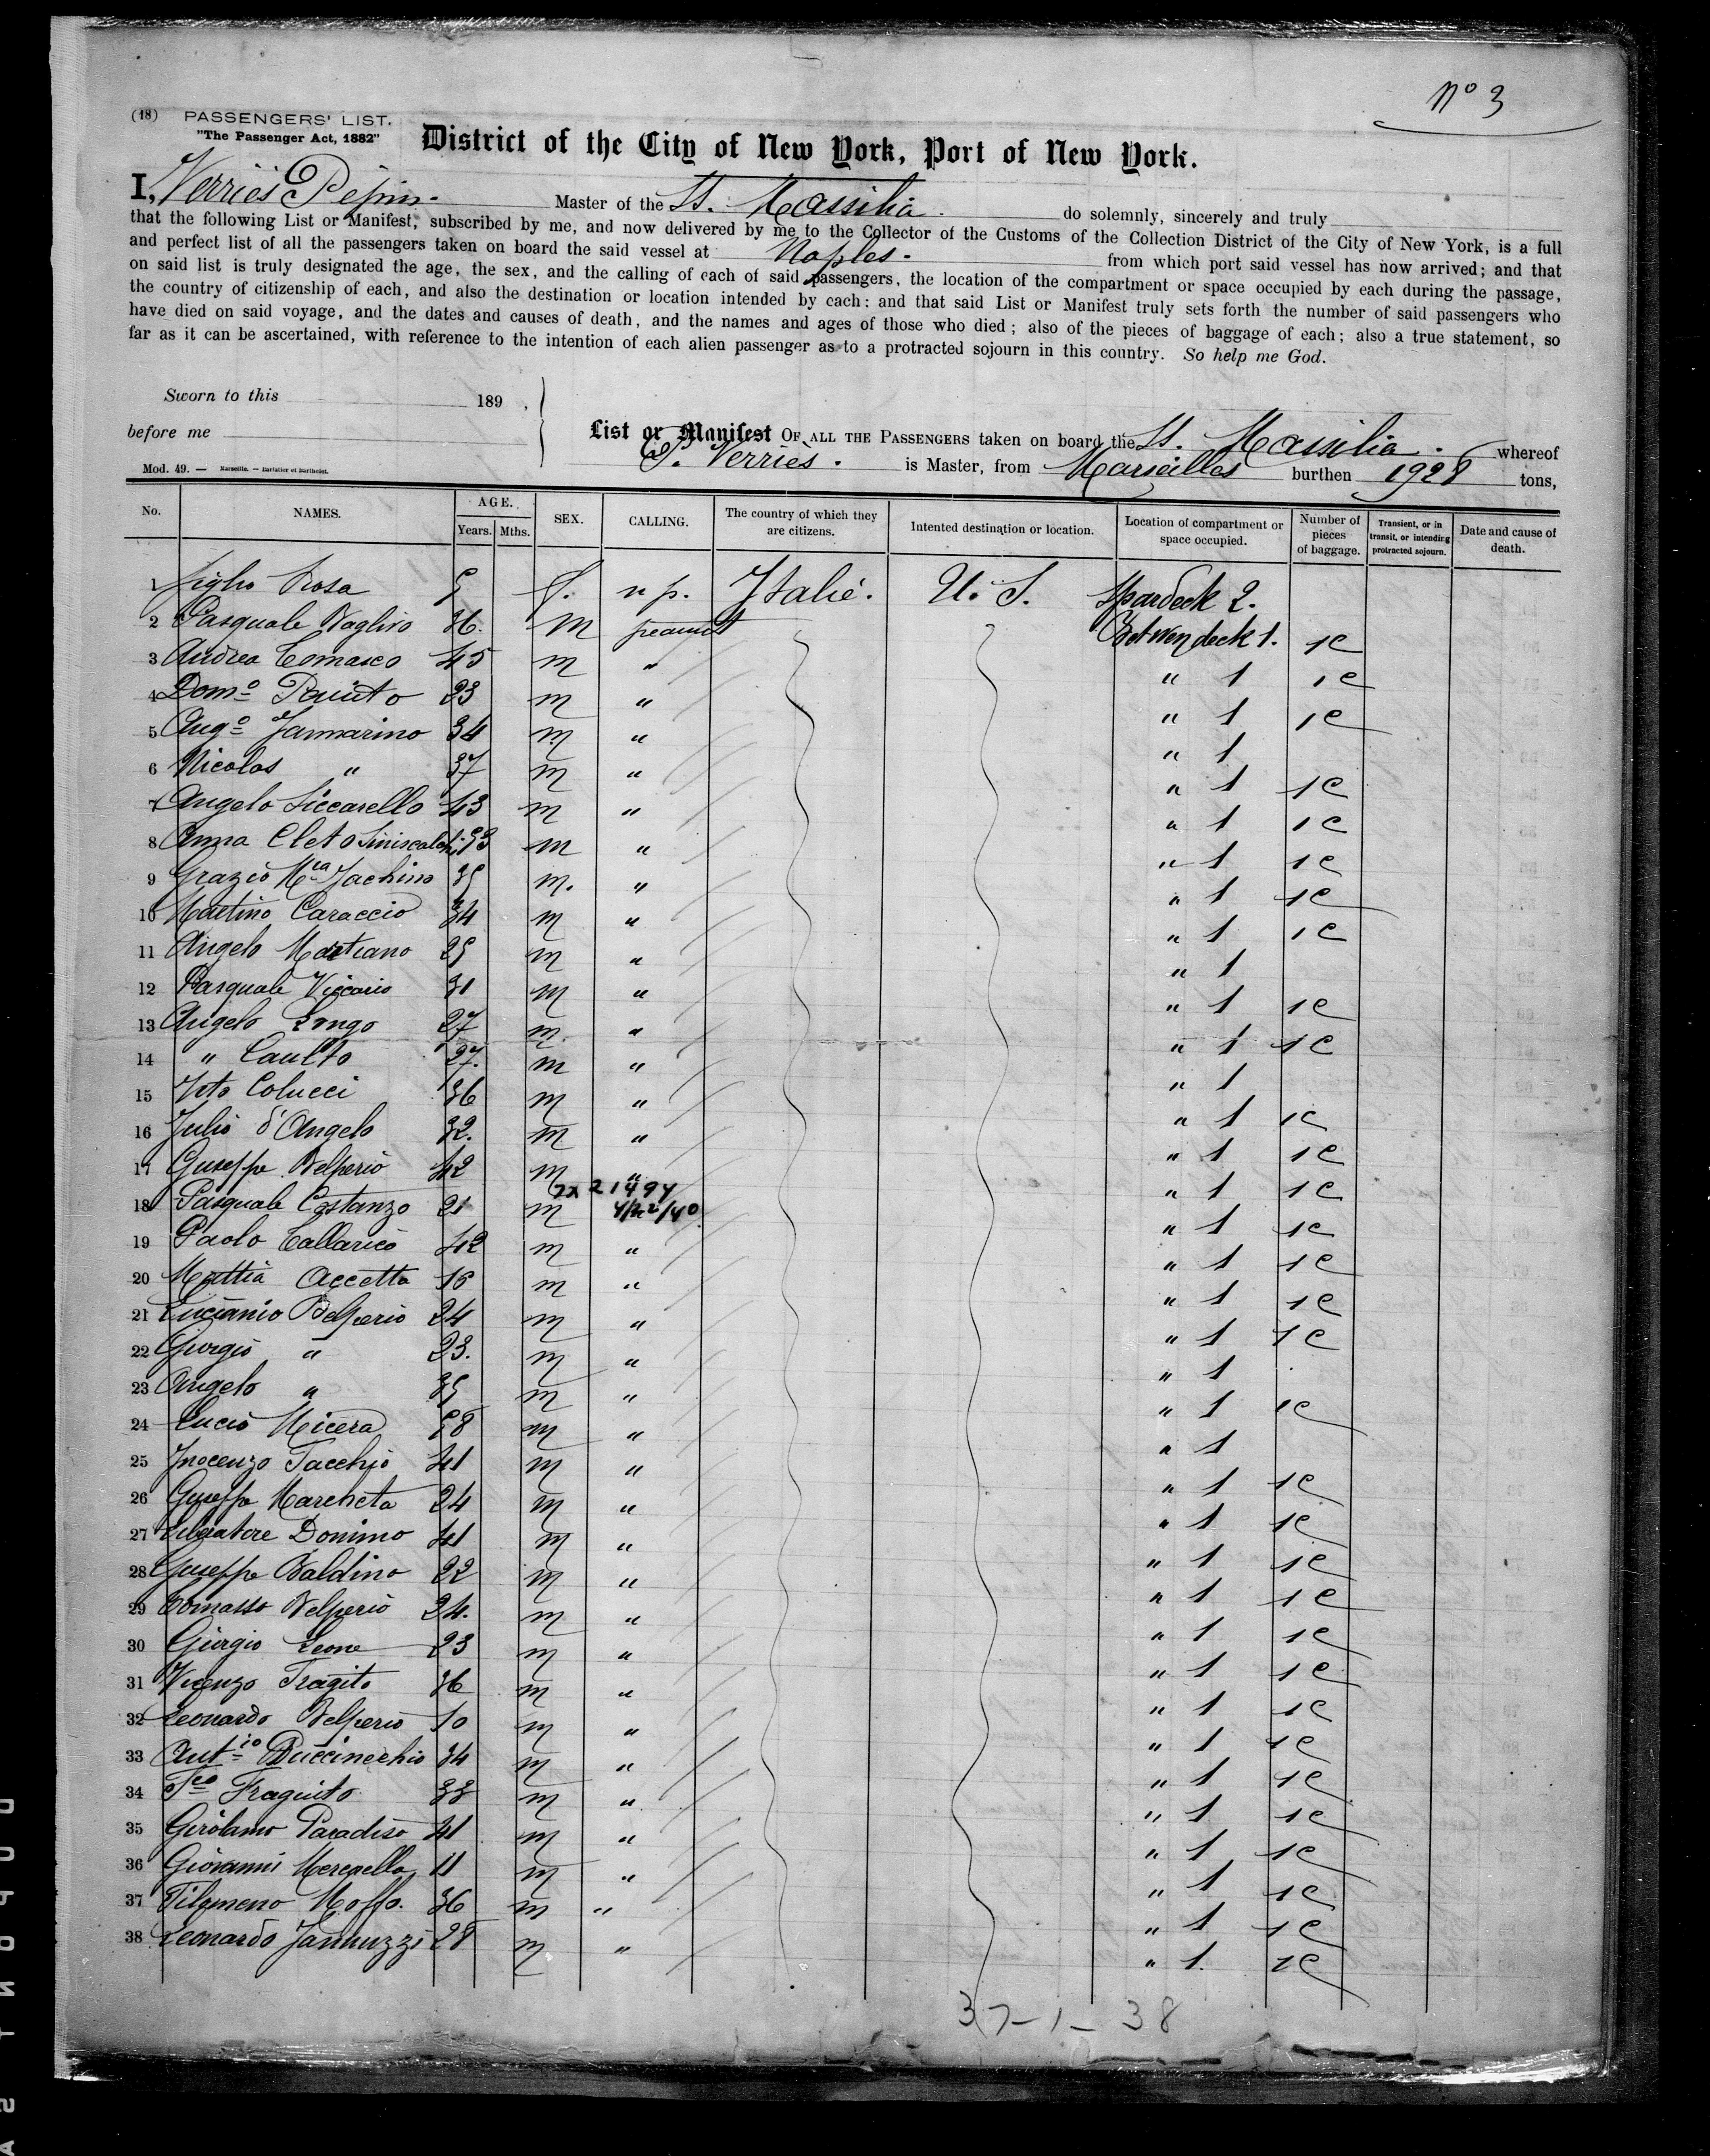 Nº 3
(18) PASSENGERS' LIST.
"The Passenger Act, 1882"
District of the City of New York, Port of New York.
I, Verries Pepin. Master of the St. Massilia. do solemnly, sincerely and truly
that the following List or Manifest, subscribed by me, and now delivered by me to the Collector of the Customs of the Collection District of the City of New York, is a full
and perfect list of all the passengers taken on board the said vessel at Naples. from which port said vessel has now arrived; and that
on said list is truly designated the age, the sex, and the calling of each of said passengers, the location of the compartment or space occupied by each during the passage,
the country of citizenship of each, and also the destination or location intended by each: and that said List or Manifest truly sets forth the number of said passengers who
have died on said voyage, and the dates and causes of death, and the names and ages of those who died; also of the pieces of baggage of each; also a true statement, so
far as it can be ascertained, with reference to the intention of each alien passenger as to a protracted sojourn in this country. So help me God.
Sworn to this 189 ,
before me
List or Manifest OF ALL THE PASSENGERS taken on board the St. Massilia. whereof
P. Verries. is Master, from Marseilles burthen 1928 tons,
Mod. 49. — Marseille. — Barlatier et Barthelet.
No. NAMES. AGE. Years. Mths. SEX. CALLING. The country of which they are citizens. Intented destination or location. Location of compartment or space occupied. Number of pieces of baggage. Transient, or in transit, or intending protracted sojourn. Date and cause of death.
1 figlio Rosa 5 f. n p. Italie. U. S. Spardeck 2.
2 Pasquale Vaglivo 36. m Betwen deck 1. 1C
3 Andrea Comasco 45 m " " 1 1C
4 Domº 23 m " " 1 1C
5 Angº Jannarino 34 m " " 1
6 Nicolas " 37 m " " 1 1C
7 Angelo Siccarello 43 m " " 1 1C
8 Anna Cleto Siniscalchi 33 m " " 1 1C
9 Grazio Mria Jachino 35 m. " " 1 1C
10 Martino Caraccio 34 m " " 1 1C
11 Angelo Martiano 25 m " " 1
12 Pasquale Viccario 31 m " " 1 1C
13 Angelo Longo 27 m. " " 1 1C
14 " 27. m " " 1
15 Vito Colucci 36 m " " 1 1C
16 Julio d'Angelo 32. m " " 1 1C
17 Guseppe Belperio 42 m " " 1 1C
2x 21494
18 Pasquale Costanzo 21 m 4/22/40 " 1 1C
19 Paolo Tallarico 42 m " " 1 1C
20 Mattia Accetta 16 m " " 1 1C
21 Lucianio Belperio 24 m " " 1 1C
22 Giorgio " 23. m " " 1
23 Angelo " 35 m " " 1 1C
24 Lucio Micera 58 m " " 1
25 Inocenzo Tacchio 41 m " " 1 1C
26 Guseppe Marcheta 24 m " " 1 1C
27 Salvatore Donimo 41 m " " 1 1C
28 Guseppe Baldino 22 m " " 1 1C
29 Tomasso Belperio 24. m " " 1 1C
30 Giorgio Leone 23 m " " 1 1C
31 Vicenzo Fragito 36 m " " 1 1C
32 Leonardo Belperio 10 m " " 1 1C
33 Antio 34 m " " 1 1C
34 Fco Fraguito 33 m " " 1 1C
35 Girolamo Paradiso 41 m " " 1 1C
36 Giovanni Mercaella 11 m " " 1 1C
37 Filomeno Moffo. 36 m " " 1 1C
38 Leonardo Jannuzzi 28 m " " 1. 2C
37 – 1 – 38